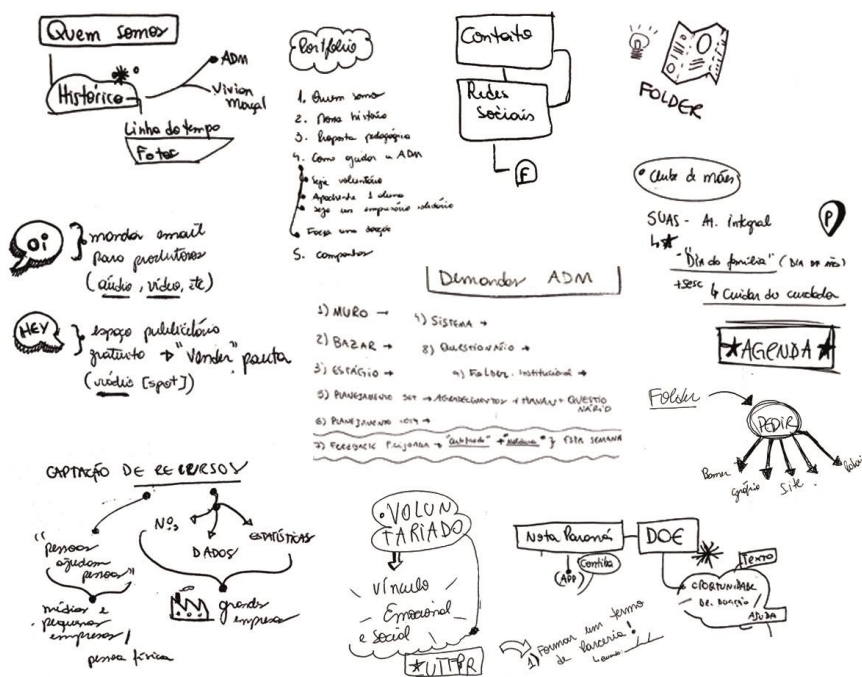 Quem somos
Histórico
ADM
Vivian
Linha do tempo
Fotos
Portfólio
1. Quem somos
2. Nossa história
3. Proposta pedagógica
4. Como ajudar a ADM
Seja voluntário
Apadrinhe 1 aluno
Seja um empresário solidário
Faça uma doação
5.
Contato
Redes
Sociais
F
FOLDER
Clube de mães
SUAS - At. integral
P
"Dia da família" (DIA DA MÃE)
+ Sesc
Cuidar do cuidador
AGENDA
Oi
mandar email
para produtoras
(áudio, vídeo, etc)
HEY
espaço publicitário
gratuito → "Vender" pauta
(rádio [spot])
Demandas ADM
1) MURO →
2) BAZAR →
3) ESTÁGIO →
SISTEMA →
8) QUESTIONÁRIO →
9) FOLDER. Institucional →
5) PLANEJAMENTO SET → AGRADECIMENTOS + + QUESTIO
NÁRIO
6) PLANEJAMENTO
7) FEEDBACK SEMANA
Folder
PEDIR
Banner
gráfica
Site
CAPTAÇÃO DE RECURSOS
"pessoas
ajudam
pessoas"
médias e
pequenas
empresas /
pessoa física
Nºs
DADOS
ESTATÍSTICAS
grandes
empresas
VOLUN
TARIADO
Vínculo
Emocional
e Social
UTFPR
Nota Paraná
DOE
(APP)
TEXTO
OPORTUNIDADE
DE DOAÇÃO
AJUDA
1) Formar um termo
de Parceria!